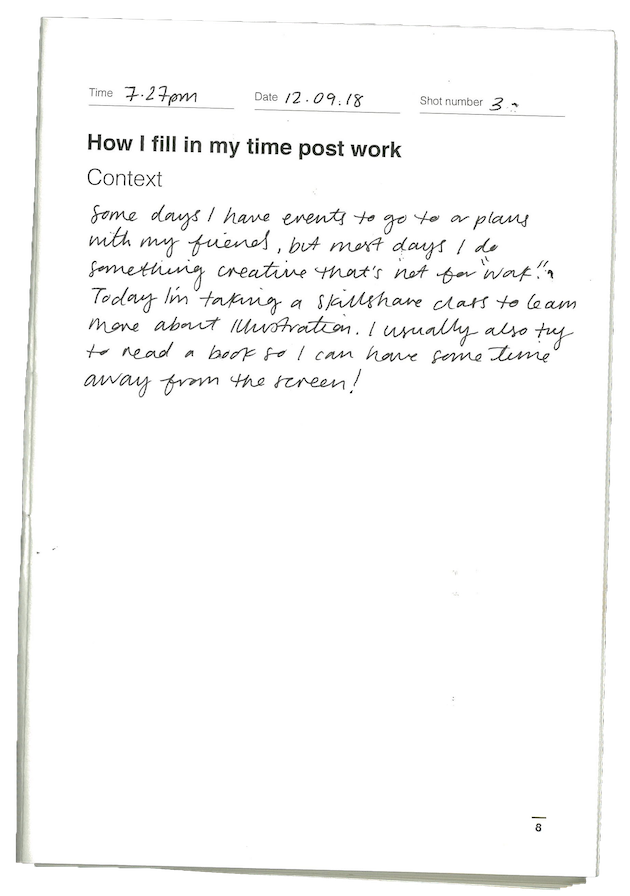 Time 7.27pm Date 12.09.18 Shot number 3.
How I fill in my time post work
Context
Some days I have events to go to or plans
with my friend, but most days I do
something creative that's not for "work".
Today I'm taking a skillshare class to learn
more about Illustration. I usually also try
to read a book so I can have some time
away from the screen!
8